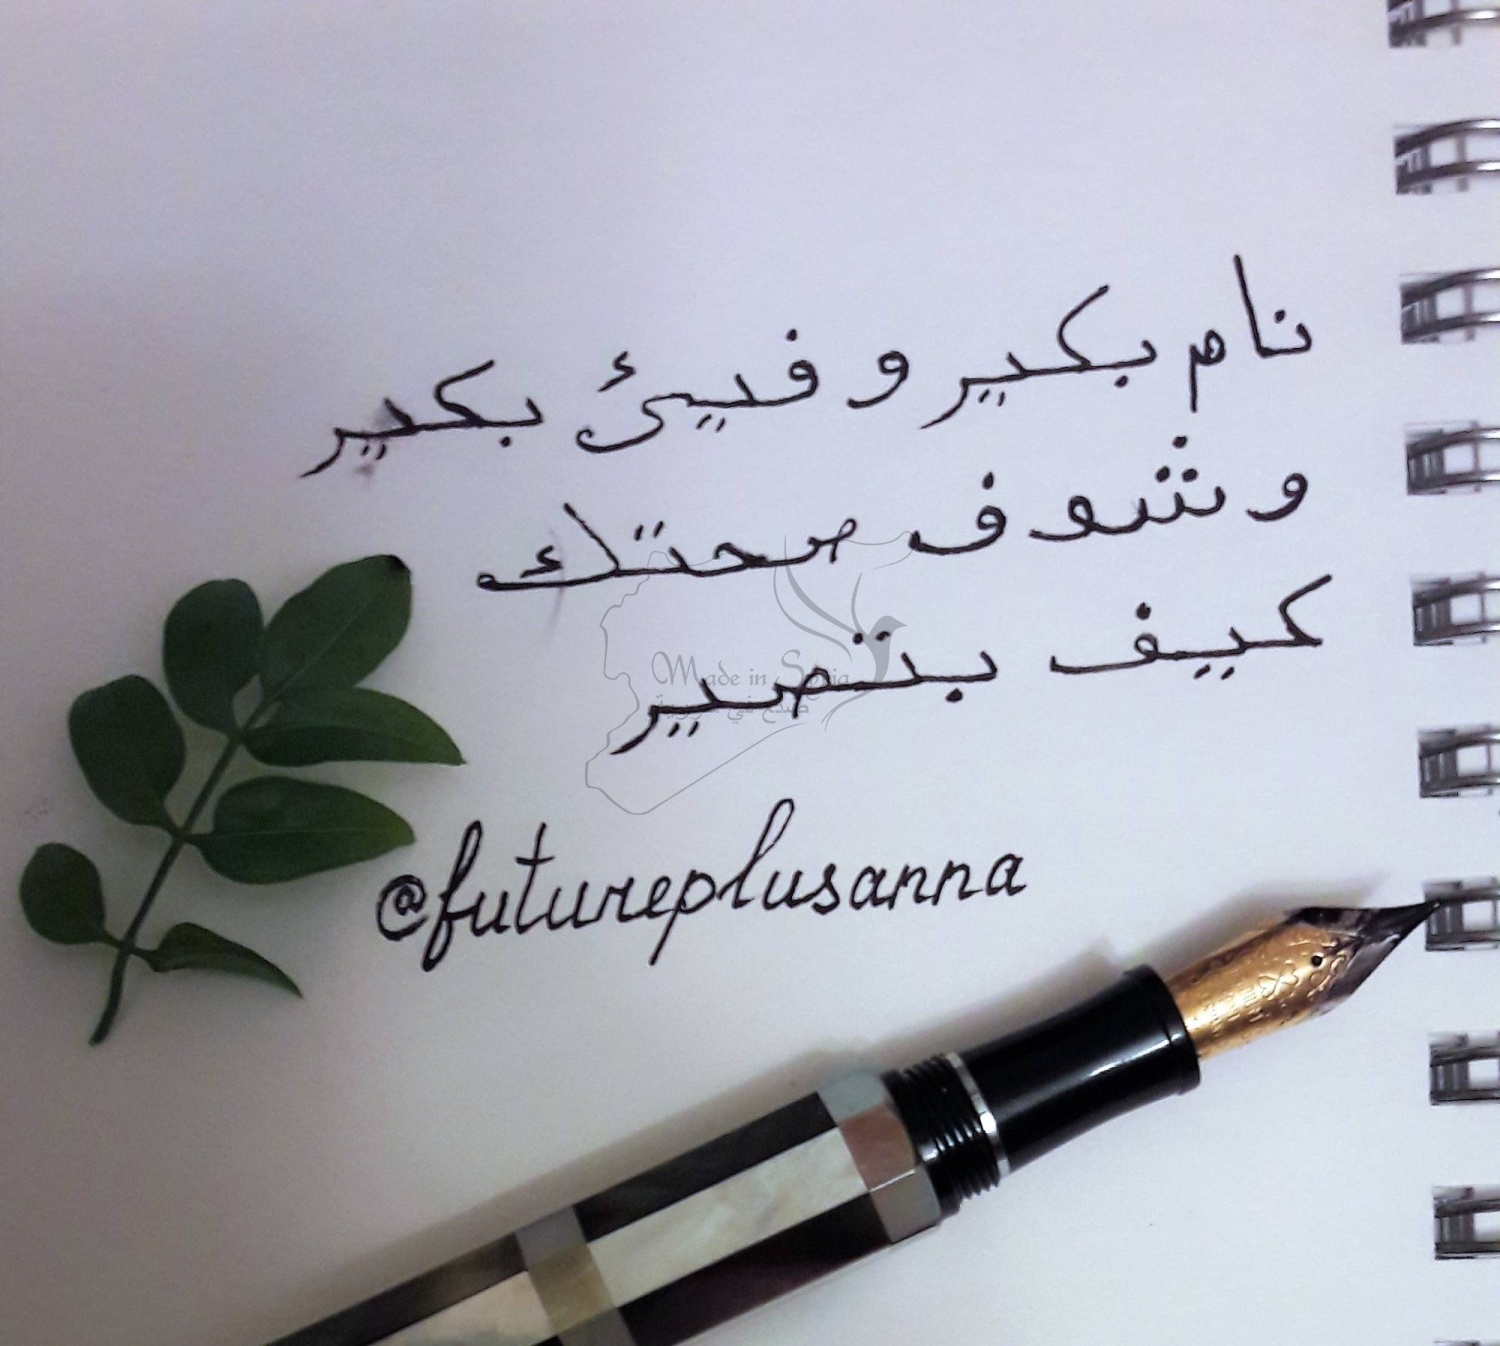 نام بكير و فيئ بكير
و شوف صحتك
كييف بتصير
Made in Syria
صنع في سورية
@futureplusanna